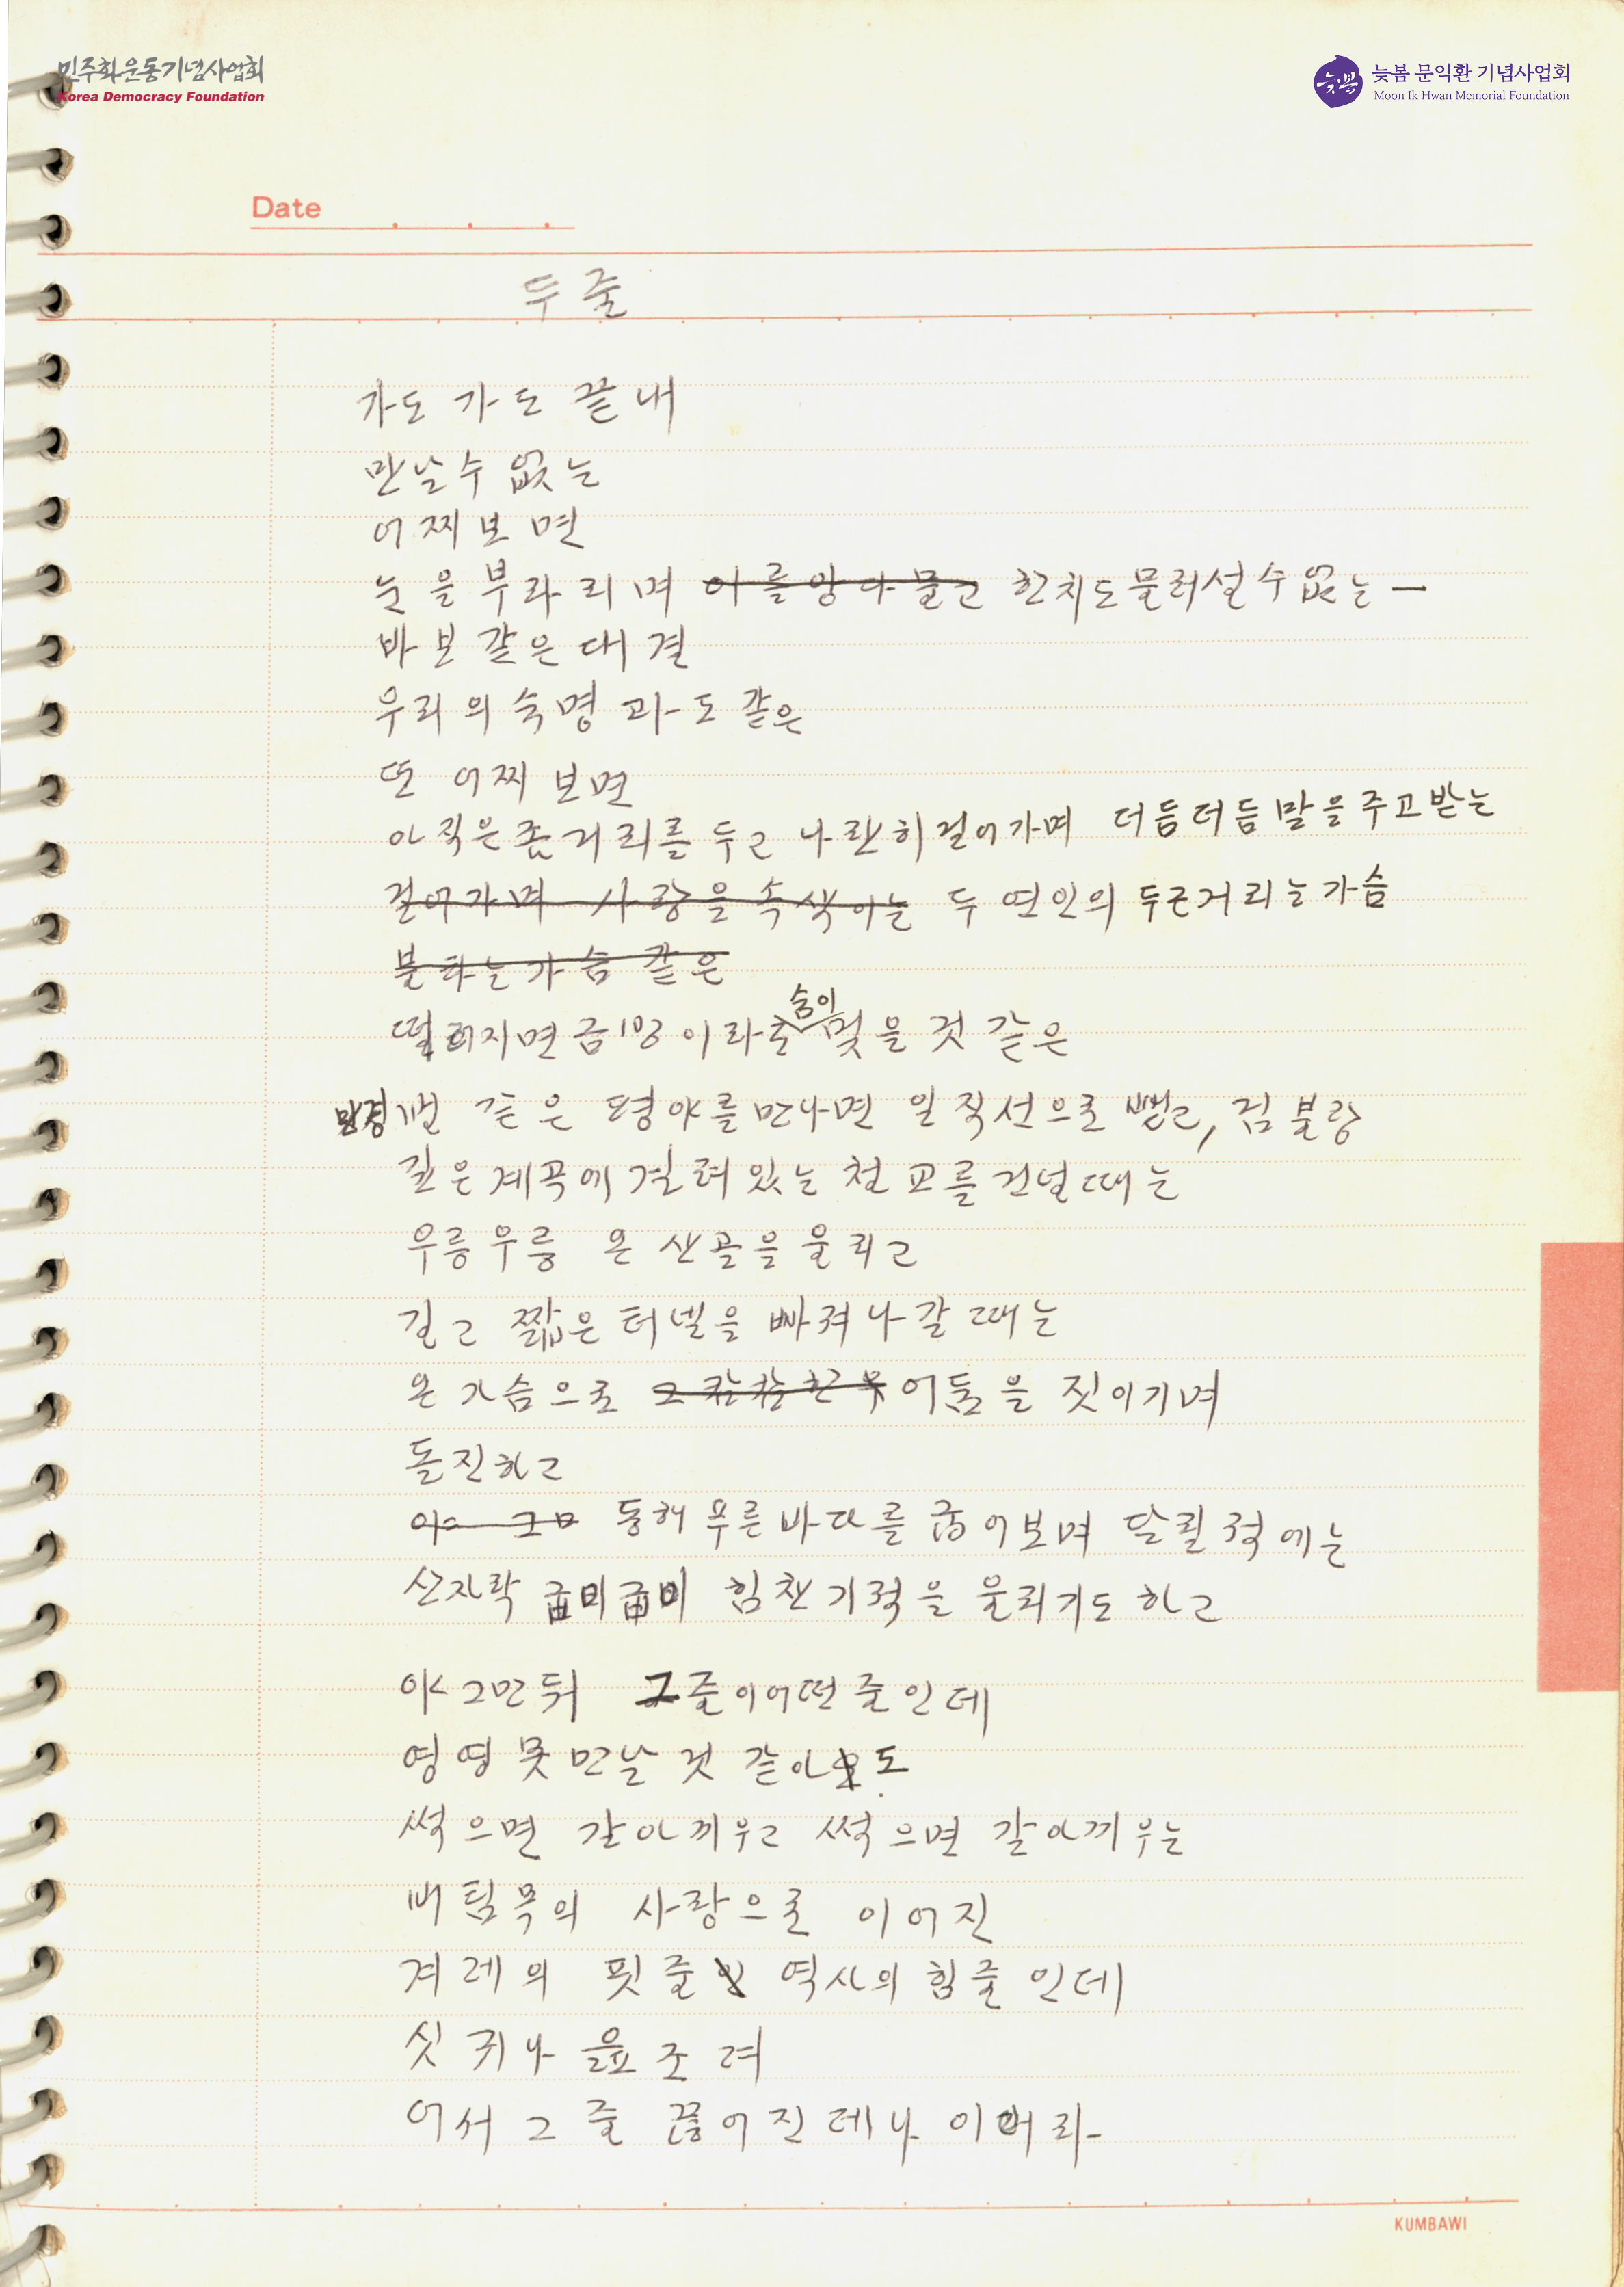 민주화운동기념사업회
Korea Democracy Foundation
늦봄 문익환 기념사업회
Moon Ik Hwan Memorial Foundation
Date
두 줄
가도 가도 끝내
만날 수 없는
어찌 보면
눈을 부라리며 이를 앙다물고 한치도 물러설 수 없는 —
바보 같은 대결
우리의 숙명과도 같은
또 어찌 보면
아직은 좀 거리를 두고 나란히 걸어가며 더듬더듬 말을 주고받는
걸어가며 사랑을 속색이는 두 연인의 두근거리는 가슴
불타는 가슴 같은
떨어지면 금방이라도 숨이 멎을 것 같은
만경 같은 평야를 만나면 일직선으로 뻗고, 김 불랑
깊은 계곡에 걸려 있는 철교를 건널 때는
우릉우릉 온 산골을 울리고
길고 짧은 터널을 빠져나갈 때는
온 가슴으로 그 캄캄한 어둠을 짓이기며
돌진하고
동해 푸른 바다를 굽어보며 달릴 적에는
산자락 굽이굽이 힘찬 기적을 울리기도 하고
야 그만둬 그 줄이 어떤 줄인데
영영 못 만날 것 같아도
썩으면 갈아끼우고 썩으면 갈아끼우는
버팀목의 사랑으로 이어진
겨레의 핏줄 역사의 힘줄인데
싯귀나 읊조려
어서 그 줄 끊어진 데나 이어라
KUMBAWI